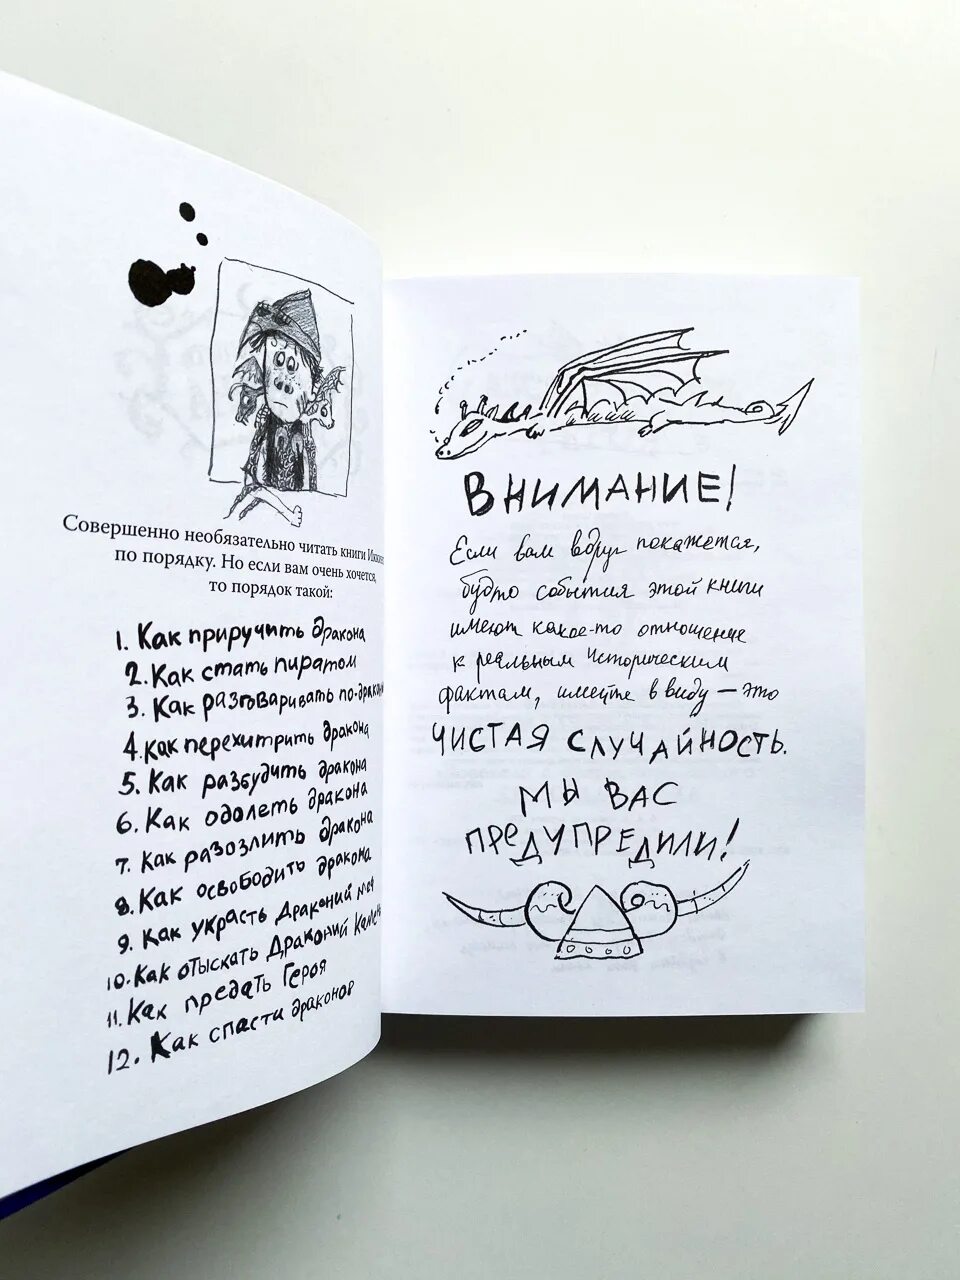 Совершенно необязательно читать книги
по порядку. Но если вам очень хочется,
то порядок такой:
1. Как приручить дракона
2. Как стать пиратом
3. Как разговаривать
4. Как перехитрить дракона
5. Как разбудить дракона
6. Как одолеть дракона
7. Как разозлить дракона
8. Как освободить дракона
9. Как украсть Драконий меч
10. Как отыскать Драконий
11. Как предать Героя
12. Как спасти драконов
ВНИМАНИЕ!
Если вам вдруг покажется,
будто события этой книги
имеют какое-то отношение
к реальным историческим
фактам, имейте в виду — это
ЧИСТАЯ СЛУЧАЙНОСТЬ.
МЫ ВАС
ПРЕДУПРЕДИЛИ!